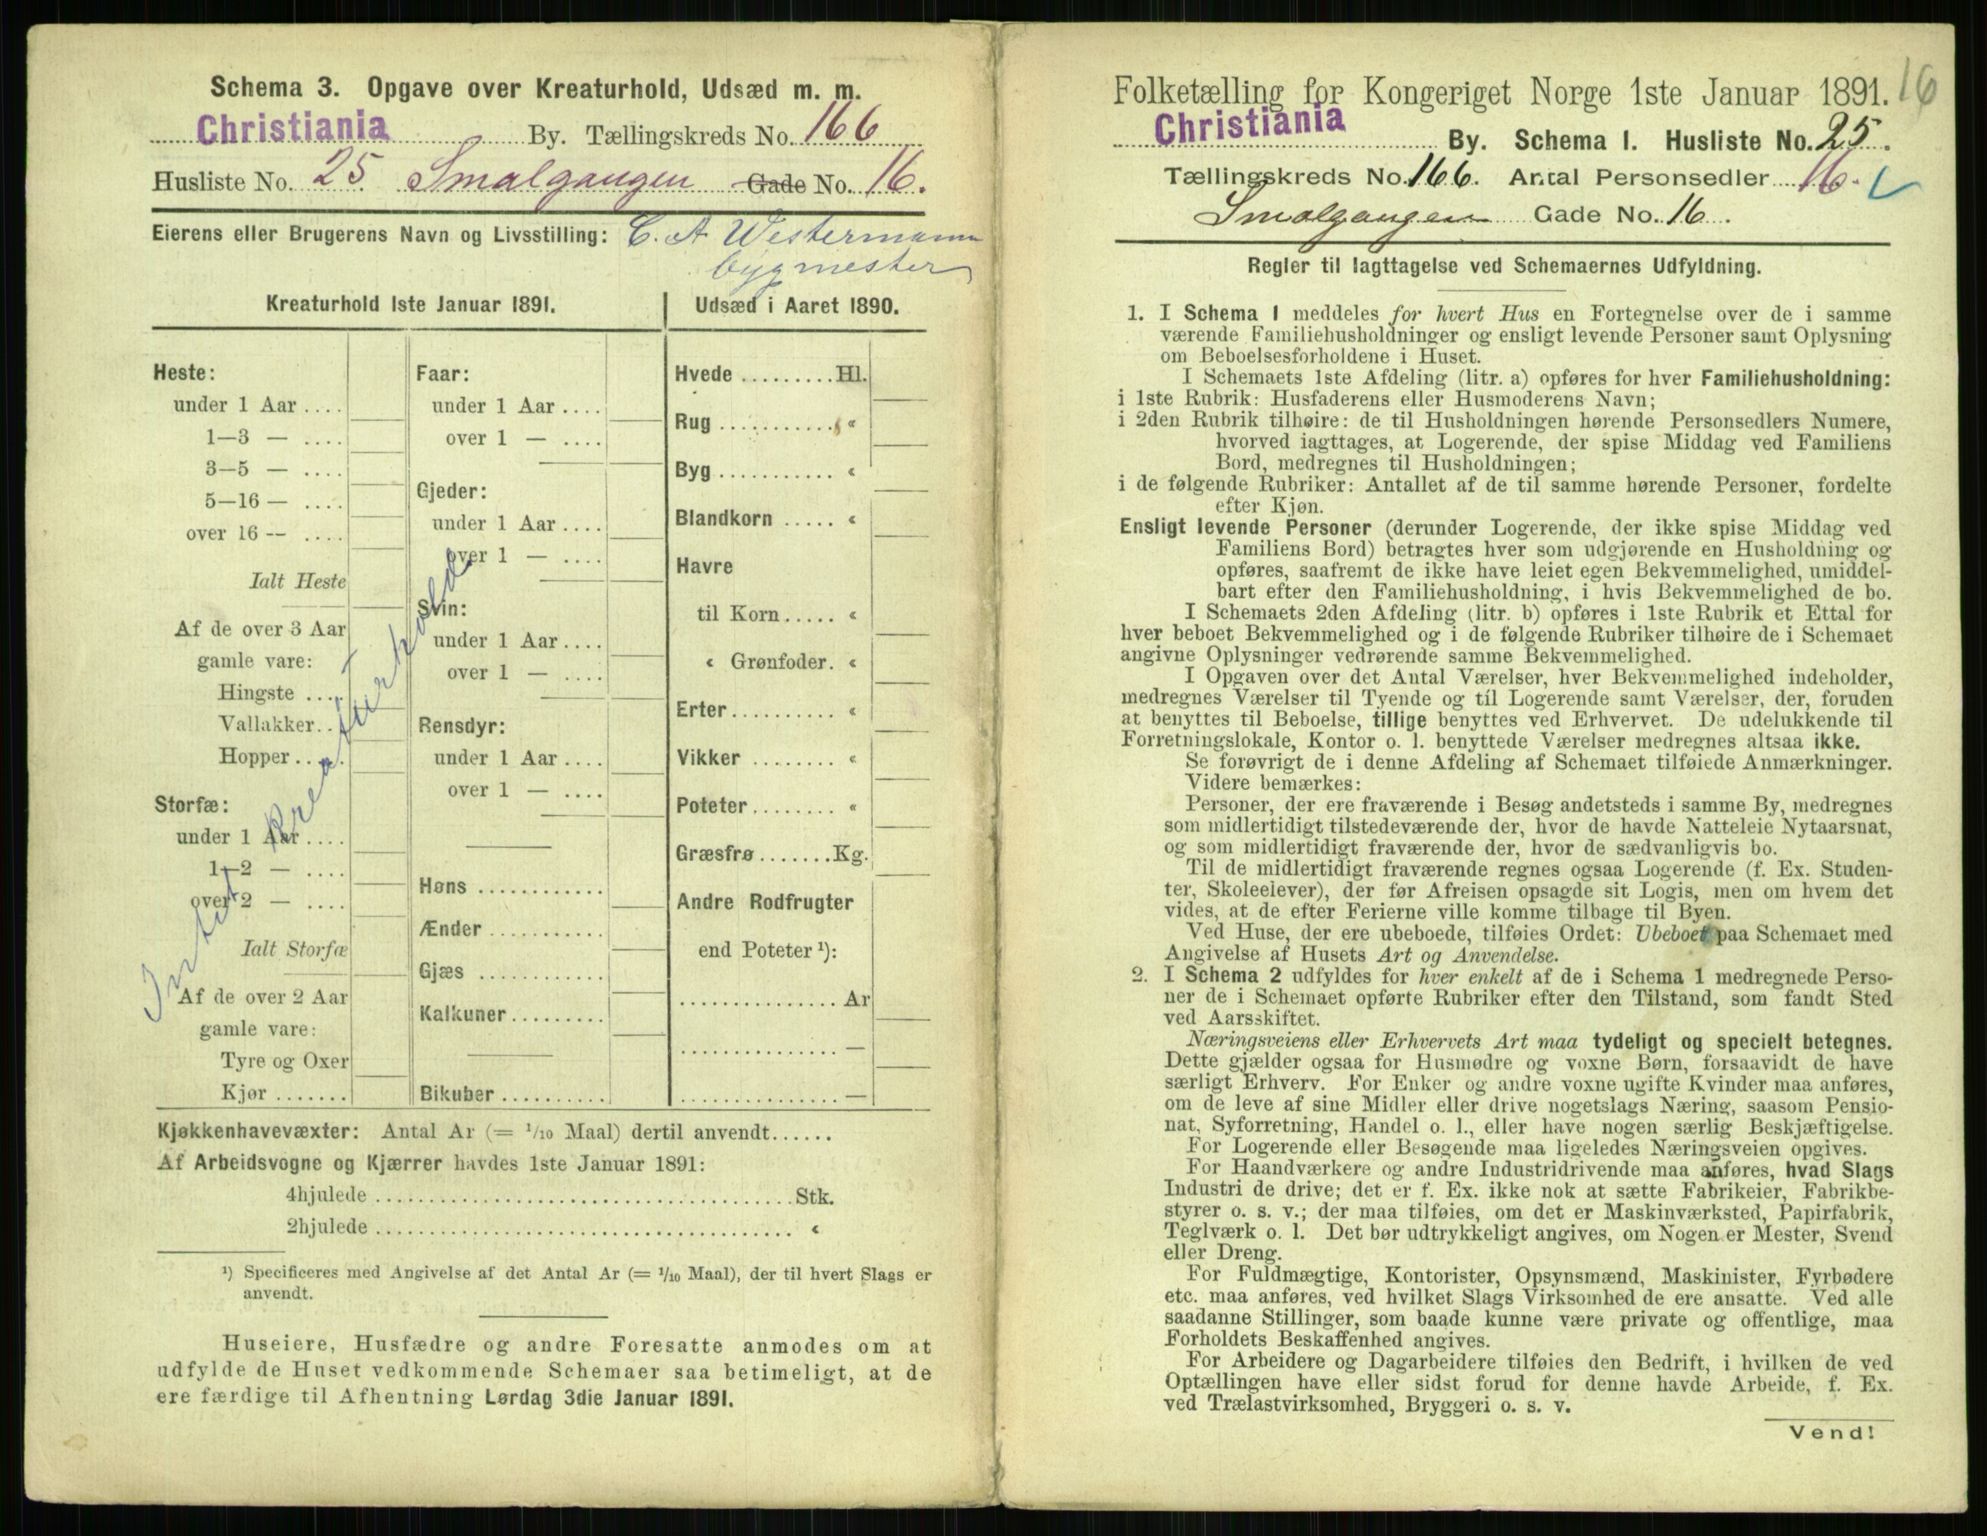 Schema 3. Opgave over Kreaturhold, Udsæd m. m.
Christiania By. Tællingskreds No. 166
Husliste No. 25 Smalgangen Gade No. 16.
Eierens eller Brugerens Navn og Livsstilling: C. A Westermann
bygmester
Kreaturhold 1ste Januar 1891.
Heste:
under 1 Aar ....
1—3 — ....
3—5 — ....
5—16 — ....
over 16 -- ....
Ialt Heste
Af de over 3 Aar
gamle vare:
Hingste ....
Vallakker...
Hopper.....
Storfæ:
under 1 Aar....
1—2 — ....
over 2 — ....
Ialt Storfæ
Af de over 2 Aar
gamle vare:
Tyre og Oxer
Kjør .......
Intet Kreaturhold
Faar:
under 1 Aar ....
over 1 — ....
Gjeder:
under 1 Aar ....
over 1 — ....
Svin:
under 1 Aar ....
over 1 — ....
Rensdyr:
under 1 Aar ....
over 1 — ....
Høns ............
Ænder ...........
Gjæs ............
Kalkuner.........
Bikuber..........
Udsæd i Aaret 1890.
Hvede .........Hl.
Rug ........... «
Byg............ «
Blandkorn ..... «
Havre
til Korn..... «
« Grønfoder. «
Erter.......... «
Vikker ........ «
Poteter........ «
Græsfrø.......Kg.
Andre Rodfrugter
end Poteter ¹):
...............Ar
............... —
...............—
Kjøkkenhavevæxter: Antal Ar (= 1/10 Maal) dertil anvendt......
Af Arbeidsvogne og Kjærrer havdes 1ste Januar 1891:
4hjulede ........................................Stk.
2hjulede ........................................ «
¹) Specificeres med Angivelse af det Antal Ar (= 1/10 Maal), der til hvert Slags er
anvendt.
Huseiere, Husfædre og andre Foresatte anmodes om at
udfylde de Huset vedkommende Schemaer saa betimeligt, at de
ere færdige til Afhentning Lørdag 3die Januar 1891.
16
Folketælling for Kongeriget Norge 1ste Januar 1891.
Christiania By. Schema I. Husliste No. 25.
Tællingskreds No. 166. Antal Personsedler 16.
Smalgangen Gade No. 16.
Regler til Iagttagelse ved Schemaernes Udfyldning.
1. I Schema 1 meddeles for hvert Hus en Fortegnelse over de i samme
værende Familiehusholdninger og ensligt levende Personer samt Oplysning
om Beboelsesforholdene i Huset.
I Schemaets 1ste Afdeling (litr. a) opføres for hver Familiehusholdning:
i 1ste Rubrik: Husfaderens eller Husmoderens Navn;
i 2den Rubrik tilhøire: de til Husholdningen hørende Personsedlers Numere,
hvorved iagttages, at Logerende, der spise Middag ved Familiens
Bord, medregnes til Husholdningen;
i de følgende Rubriker: Antallet af de til samme hørende Personer, fordelte
efter Kjøn.
Ensligt levende Personer (derunder Logerende, der ikke spise Middag ved
Familiens Bord) betragtes hver som udgjørende en Husholdning og
opføres, saafremt de ikke have leiet egen Bekvemmelighed, umiddel-
bart efter den Familiehusholdning, i hvis Bekvemmelighed de bo.
I Schemaets 2den Afdeling (litr. b) opføres i 1ste Rubrik et Ettal for
hver beboet Bekvemmelighed og i de følgende Rubriker tilhøire de i Schemaet
angivne Oplysninger vedrørende samme Bekvemmelighed.
I Opgaven over det Antal Værelser, hver Bekvemmelighed indeholder,
medregnes Værelser til Tyende og til Logerende samt Værelser, der, foruden
at benyttes til Beboelse, tillige benyttes ved Erhvervet. De udelukkende til
Forretningslokale, Kontor o. l. benyttede Værelser medregnes altsaa ikke.
Se forøvrigt de i denne Afdeling af Schemaet tilføiede Anmærkninger.
Videre bemærkes:
Personer, der ere fraværende i Besøg andetsteds i samme By, medregnes
som midlertidigt tilstedeværende der, hvor de havde Natteleie Nytaarsnat,
og som midlertidigt fraværende der, hvor de sædvanligvis bo.
Til de midlertidigt fraværende regnes ogsaa Logerende (f. Ex. Studen-
ter, Skoleelever), der før Afreisen opsagde sit Logis, men om hvem det
vides, at de efter Ferierne ville komme tilbage til Byen.
Ved Huse, der ere ubeboede, tilføies Ordet: Ubeboet paa Schemaet med
Angivelse af Husets Art og Anvendelse.
2. I Schema 2 udfyldes for hver enkelt af de i Schema 1 medregnede Perso-
ner de i Schemaet opførte Rubriker efter den Tilstand, som fandt Sted
ved Aarsskiftet.
Næringsveiens eller Erhvervets Art maa tydeligt og specielt betegnes.
Dette gjælder ogsaa for Husmødre og voxne Børn, forsaavidt de have
særligt Erhverv. For Enker og andre voxne ugifte Kvinder maa anføres,
om de leve af sine Midler eller drive nogetslags Næring, saasom Pensio-
nat, Syforretning, Handel o. l., eller have nogen særlig Beskjæftigelse.
For Logerende eller Besøgende maa ligeledes Næringsveien opgives.
For Haandværkere og andre Industridrivende maa anføres, hvad Slags
Industri de drive; det er f. Ex. ikke nok at sætte Fabrikeier, Fabrikbe-
styrer o. s. v.; der maa tilføies, om det er Maskinværksted, Papirfabrik,
Teglværk o. l. Det bør udtrykkeligt angives, om Nogen er Mester, Svend
eller Dreng.
For Fuldmægtige, Kontorister, Opsynsmænd, Maskinister, Fyrbødere
etc. maa anføres, ved hvilket Slags Virksomhed de ere ansatte. Ved alle
saadanne Stillinger, som baade kunne være private og offentlige, maa
Forholdets Beskaffenhed angives.
For Arbeidere og Dagarbeidere tilføies den Bedrift, i hvilken de ved
Optællingen have eller sidst forud for denne havde Arbeide, f. Ex.
ved Trælastvirksomhed, Bryggeri o. s. v.
Vend!